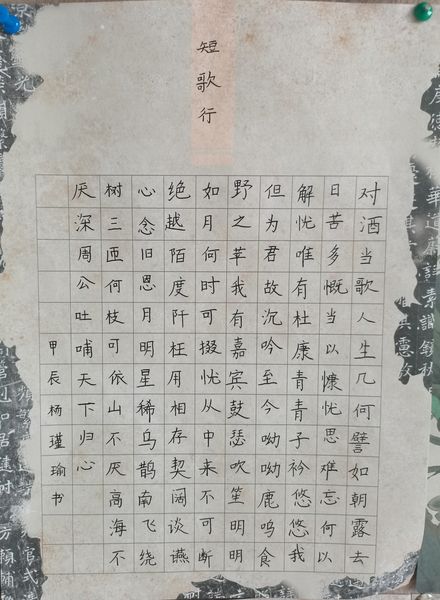 短歌行
对酒当歌人生几何譬如朝露去
日苦多慨当以慷忧思难忘何以
解忧唯有杜康青青子衿悠悠我
但为君故沉吟至今呦呦鹿鸣食
野之苹我有嘉宾鼓瑟吹笙明明
如月何时可掇忧从中来不可断
绝越陌度阡枉用相存契阔谈䜩
心念旧恩月明星稀乌鹊南飞绕
树三匝何枝可依山不厌高海不
厌深周公吐哺天下归心
甲辰杨瑾瑜书